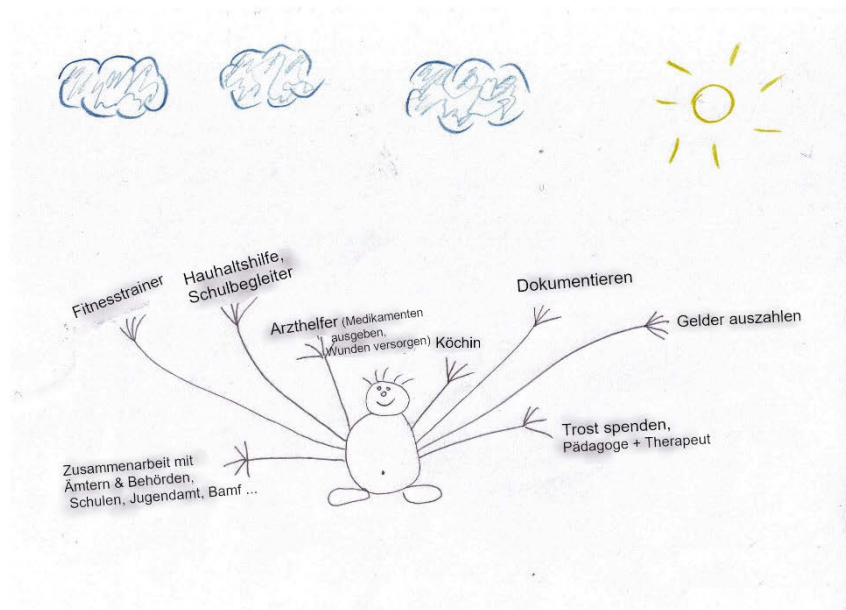 Fitnesstrainer
Hauhaltshilfe,
Schulbegleiter
Arzthelfer (Medikamenten
ausgeben,
Wunden versorgen)
Köchin
Dokumentieren
Gelder auszahlen
Trost spenden,
Pädagoge + Therapeut
Zusammenarbeit mit
Ämtern & Behörden,
Schulen, Jugendamt, Bamf ...